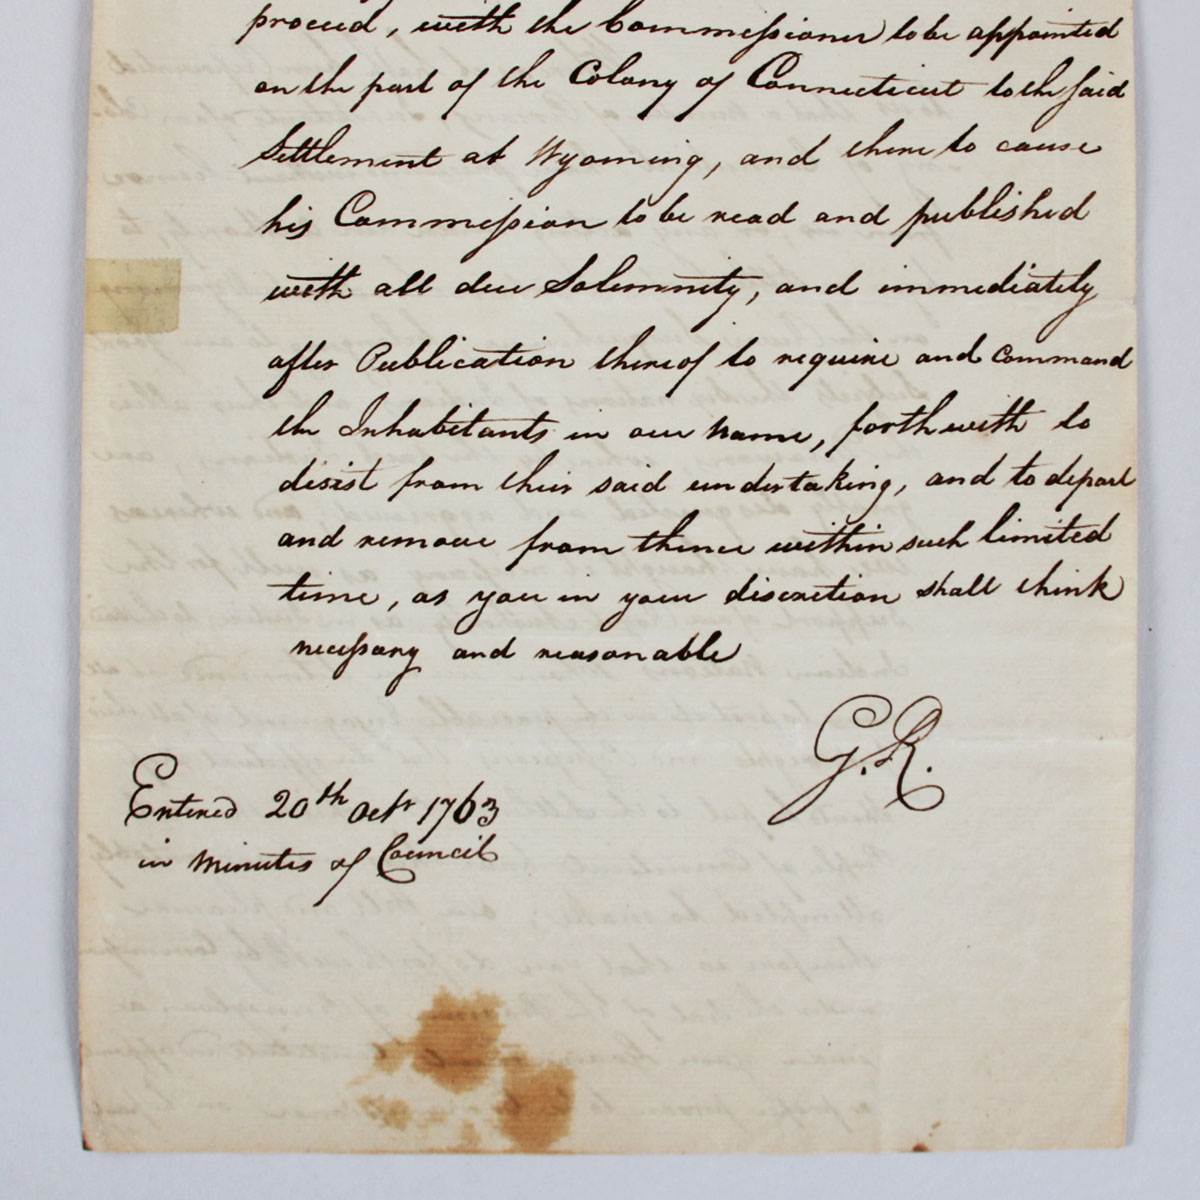 proceed, with the Commissioner to be appointed
on the part of the Colony of Connecticut to the said
Settlement at Wyoming, and there to cause
his Commission to be read and published
with all due Solemnity, and immediately
after Publication thereof to require and command
the Inhabitants in our Name, forthwith to
desist from their said undertaking, and to depart
and remove from thence within such limited
time, as you in your discretion shall think
necessary and reasonable
G.R.
Entered 20th Octr 1763
in Minutes of Council